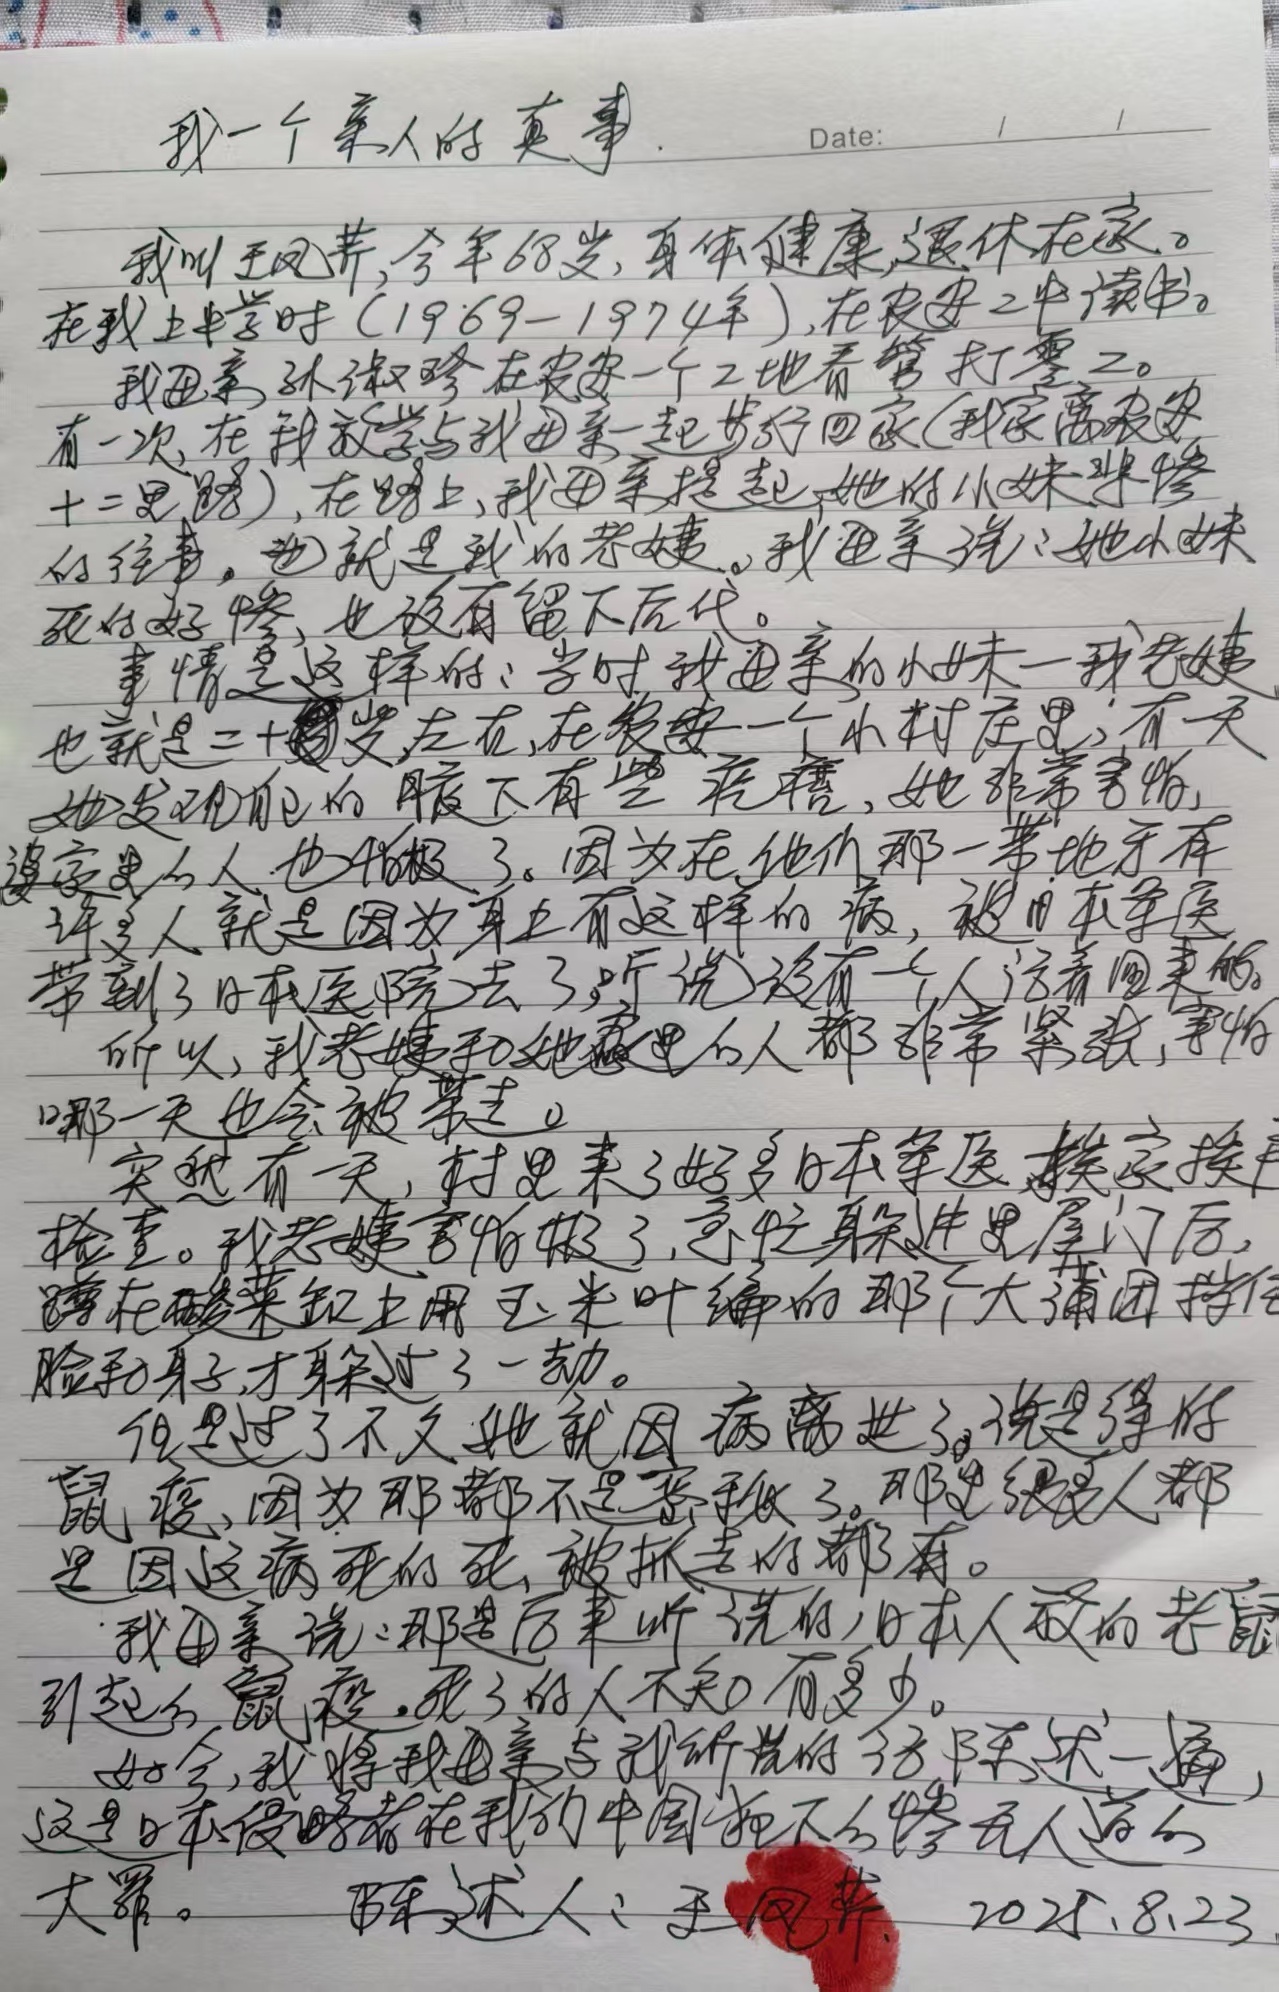 我一个亲人的真事.
Date: / /
我叫王凤荠,今年68岁,身体健康,退休在家。
在我上中学时(1969—1974年),在农安二中读书。
我母亲孙淑珍在农安一个工地看管打零工。
有一次,在我放学与我母亲一起步行回家(我家离农安
十二里路),在路上,我母亲提起,她的小妹悲惨
的往事。也就是我的老姨。我母亲说:她小妹
死的好惨,也没有留下后代。
事情是这样的:当时我母亲的小妹一我老姨
也就是二十岁左右,在农安一个小村庄里,有一天
她发现自己的腋下有些疙瘩,她非常害怕,
婆家里的人也怕极了。因为在他们那一带地方有
许多人就是因为身上有这样的病,被日本军医
带到了日本医院去了,听说没有一个人活着回来的。
所以,我老姨和她家里的人都非常紧张,害怕
哪一天也会被带走。
突然有一天,村里来了好多日本军医,挨家挨户
检查。我老姨害怕极了,急忙躲进里屋门后,
蹲在酸菜缸上用玉米叶编的那个大蒲团挡住
脸和身子,才躲过了一劫。
但是过了不久她就因病离世了。说是得的
鼠疫,因为那都不是秘密了。那里很多人都
是因这病死的死,被抓去的都有。
我母亲说:那是后来听说的,日本人放的老鼠
引起的鼠疫.死了的人不知有多少。
如今,我将我母亲与我所说的话陈述一遍,
这是日本侵略者在我们中国犯下的惨无人道的
大罪。 陈述人:王凤荠. 2025.8.23.